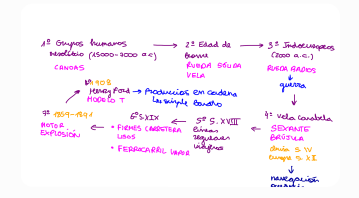 1º Grupos humanos
neolítico (15000-7000 a.c)
CANOAS
2ª Edad de
bronce
RUEDA SÓLIDA
VELA
3º Indoeuropeos
(2000 a.c.)
RUEDA RADIOS
guerra
4º Vela Carabela
SEXANTE
BRÚJULA
china S. IV
europa S. XII
navegación
5º S. XVIII
líneas
regulares
viajeros
6º S. XIX
* FIRMES CARRETERA
LISOS
* FERROCARRIL VAPOR
7º 1859-1891
MOTOR
EXPLOSIÓN
8º 1908
Henry Ford → Producción en cadena
MODELO T